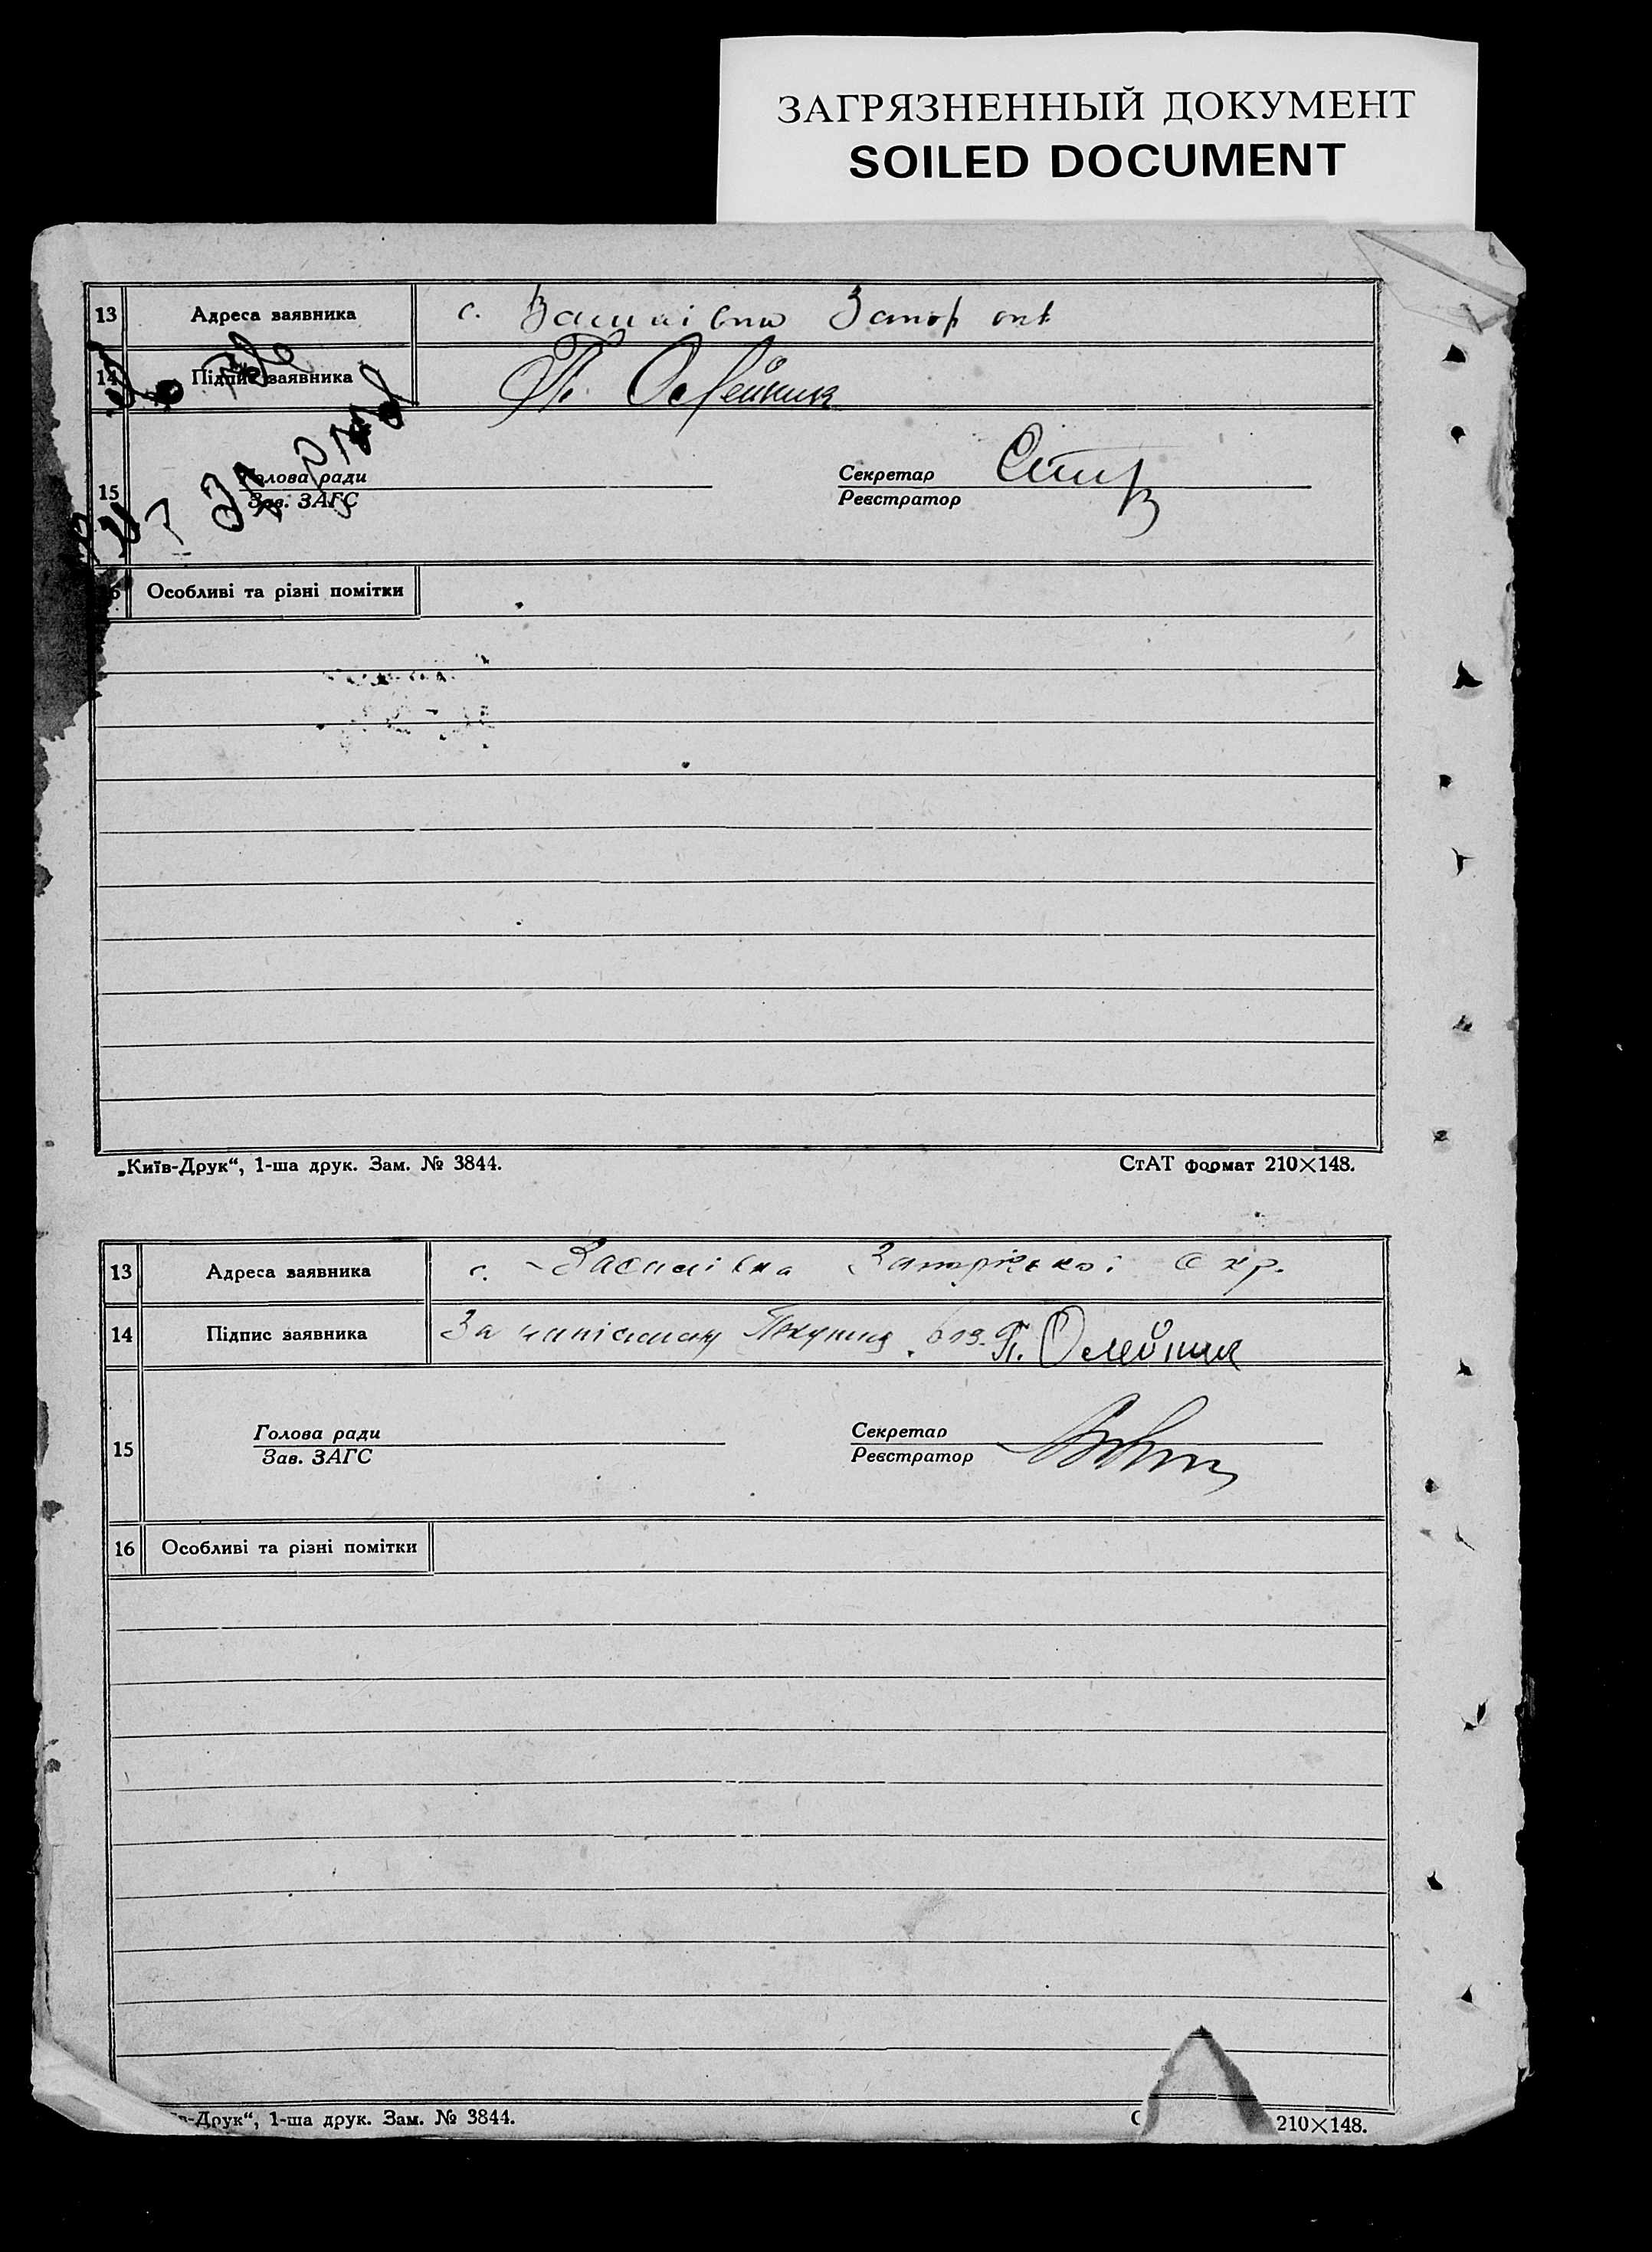 ЗАГРЯЗНЕННЫЙ ДОКУМЕНТ
SOILED DOCUMENT
13 Адреса заявника с. Василівка Запор окр
14 Підпис заявника П. Олейник
15 Голова ради Секретар
Зав. ЗАГС Реєстратор
16 Особливі та різні помітки
„Київ-Друк“, 1-ша друк. Зам. № 3844. СтАТ формат 210×148.
13 Адреса заявника с. Василівка Запорізької Окр.
14 Підпис заявника За П. Олейник
15 Голова ради Секретар
Зав. ЗАГС Реєстратор
16 Особливі та різні помітки
в-Друк“, 1-ша друк. Зам. № 3844. 210×148.